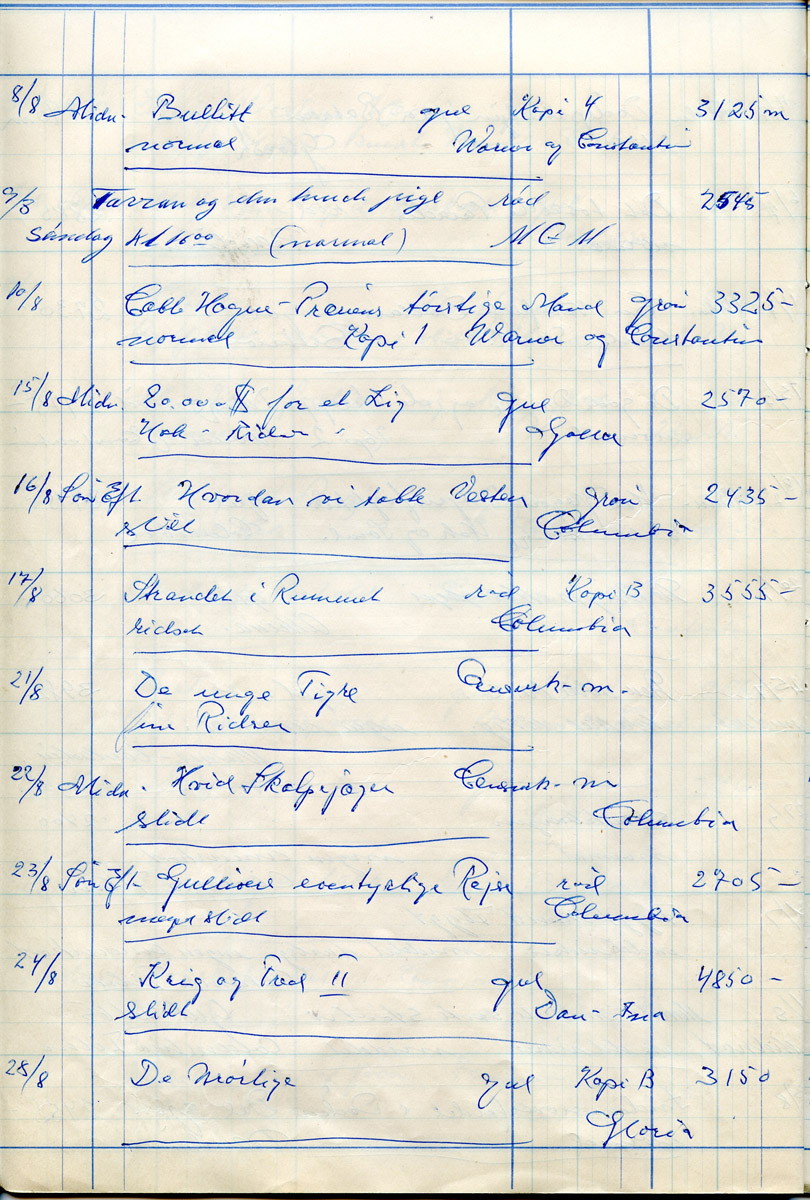 8/8 Midn. Bullitt gul Kopi 4 3125 m
normal Warner og Constantin
9/8 Tarzan og den hvide pige rød 2545
Søndag kl 16⁰⁰ (normal) MGM
10/8 Cable Hogue - Præriens tørstige Mand grøn 3325 -
normal Kopi 1 Warner og Constantin
15/8 Midn. 20.000 $ for et Lig gul 2570 -
Hak - Ridser -
16/8 Søn Eft. Hvordan vi tabte Vesten grøn 2435 -
slidt Columbia
17/8 Strandet i Rummet rød Kopi B 3555 -
ridset Columbia
21/8 De unge Tigre Censurk - m -
fine Ridser
22/8 Midn - Hvid Skalpejæger Censurk - m
slidt Columbia
23/8 Søn Eft. Gullivers eventyrlige Rejser rød 2705 -
meget slidt Columbia
24/8 Krig og Fred II gul 4850 -
slidt Dan - Ina
28/8 De Utrolige gul Kopi B 3150
Gloria